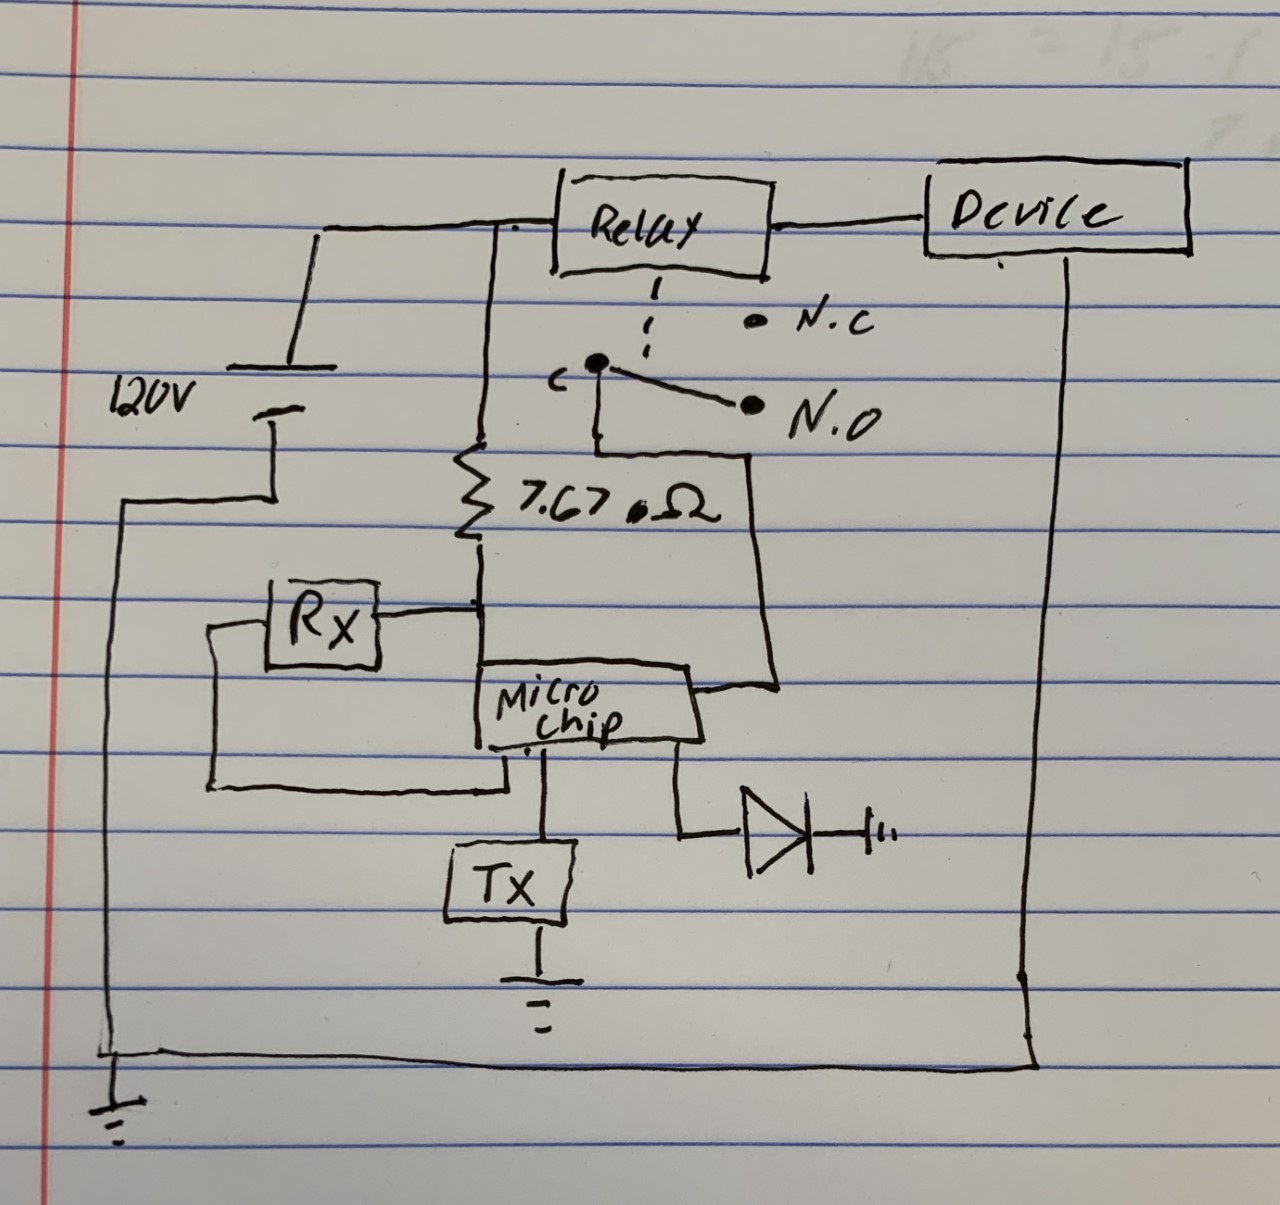 Relay
Device
N.C
120V
C
N.O
7.67 Ω
Rx
Micro
Chip
Tx